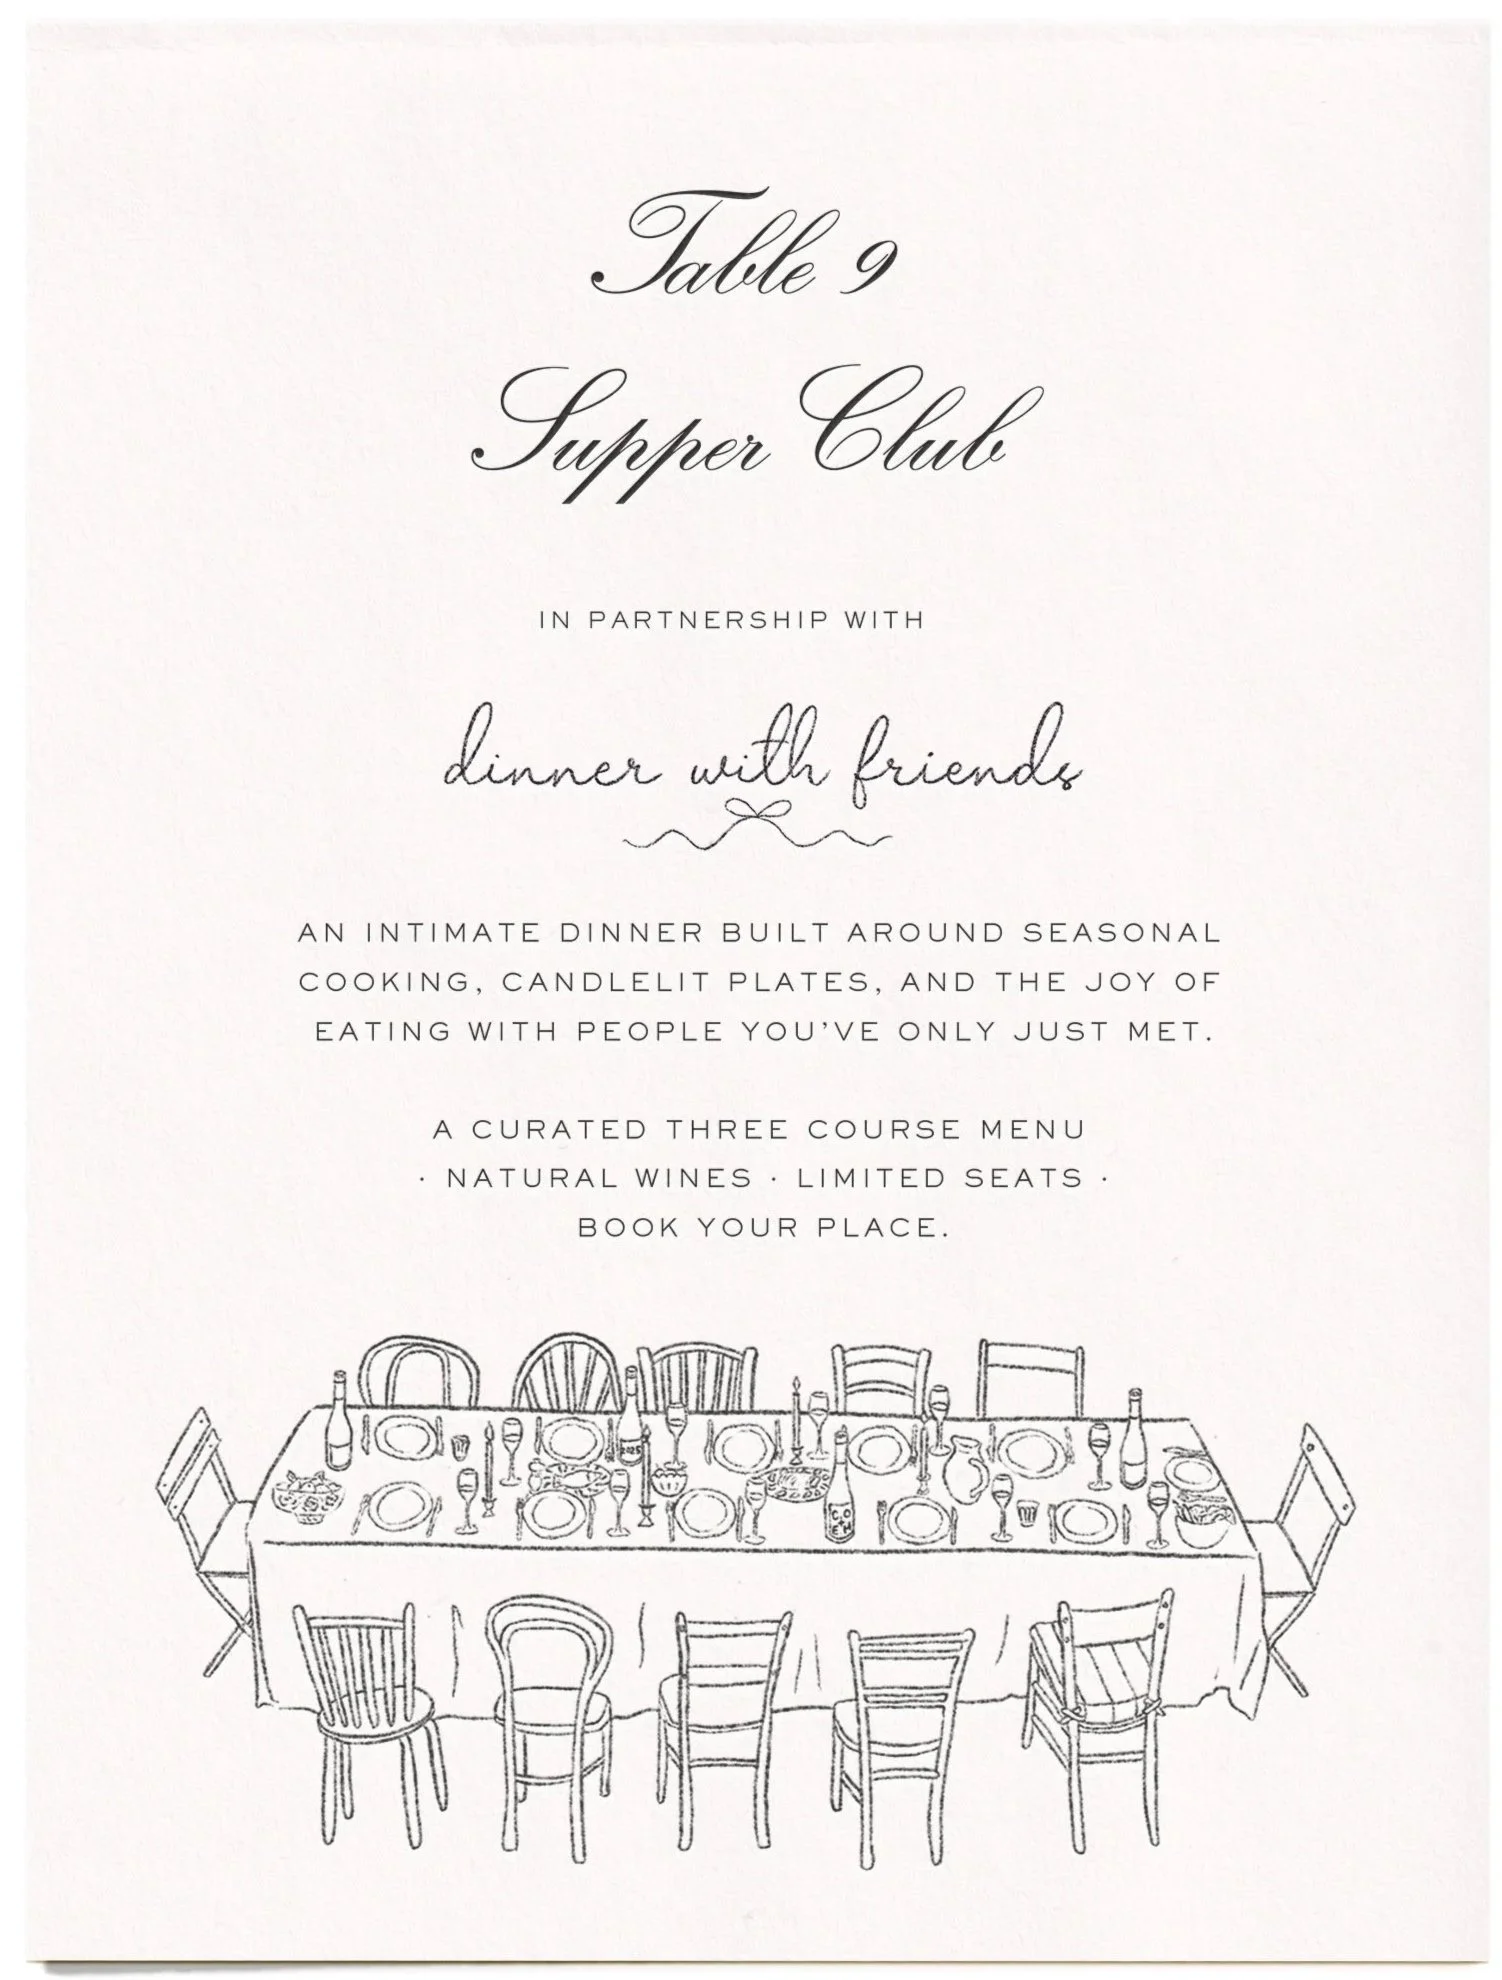 Table 9
Supper Club
IN PARTNERSHIP WITH
dinner with friends
AN INTIMATE DINNER BUILT AROUND SEASONAL
COOKING, CANDLELIT PLATES, AND THE JOY OF
EATING WITH PEOPLE YOU’VE ONLY JUST MET.
A CURATED THREE COURSE MENU
· NATURAL WINES · LIMITED SEATS ·
BOOK YOUR PLACE.
2025
C O
+
E H